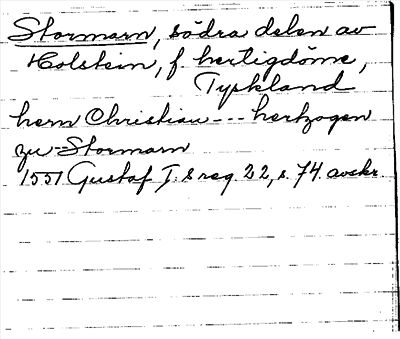 Stormarn, södra delen av
Holstein, f. hertigdöme,
Tyskland
hern Christian --- hertzogen
zu--Stormarn
1551 Gustaf I:s reg. 22, s. 74. avskr.